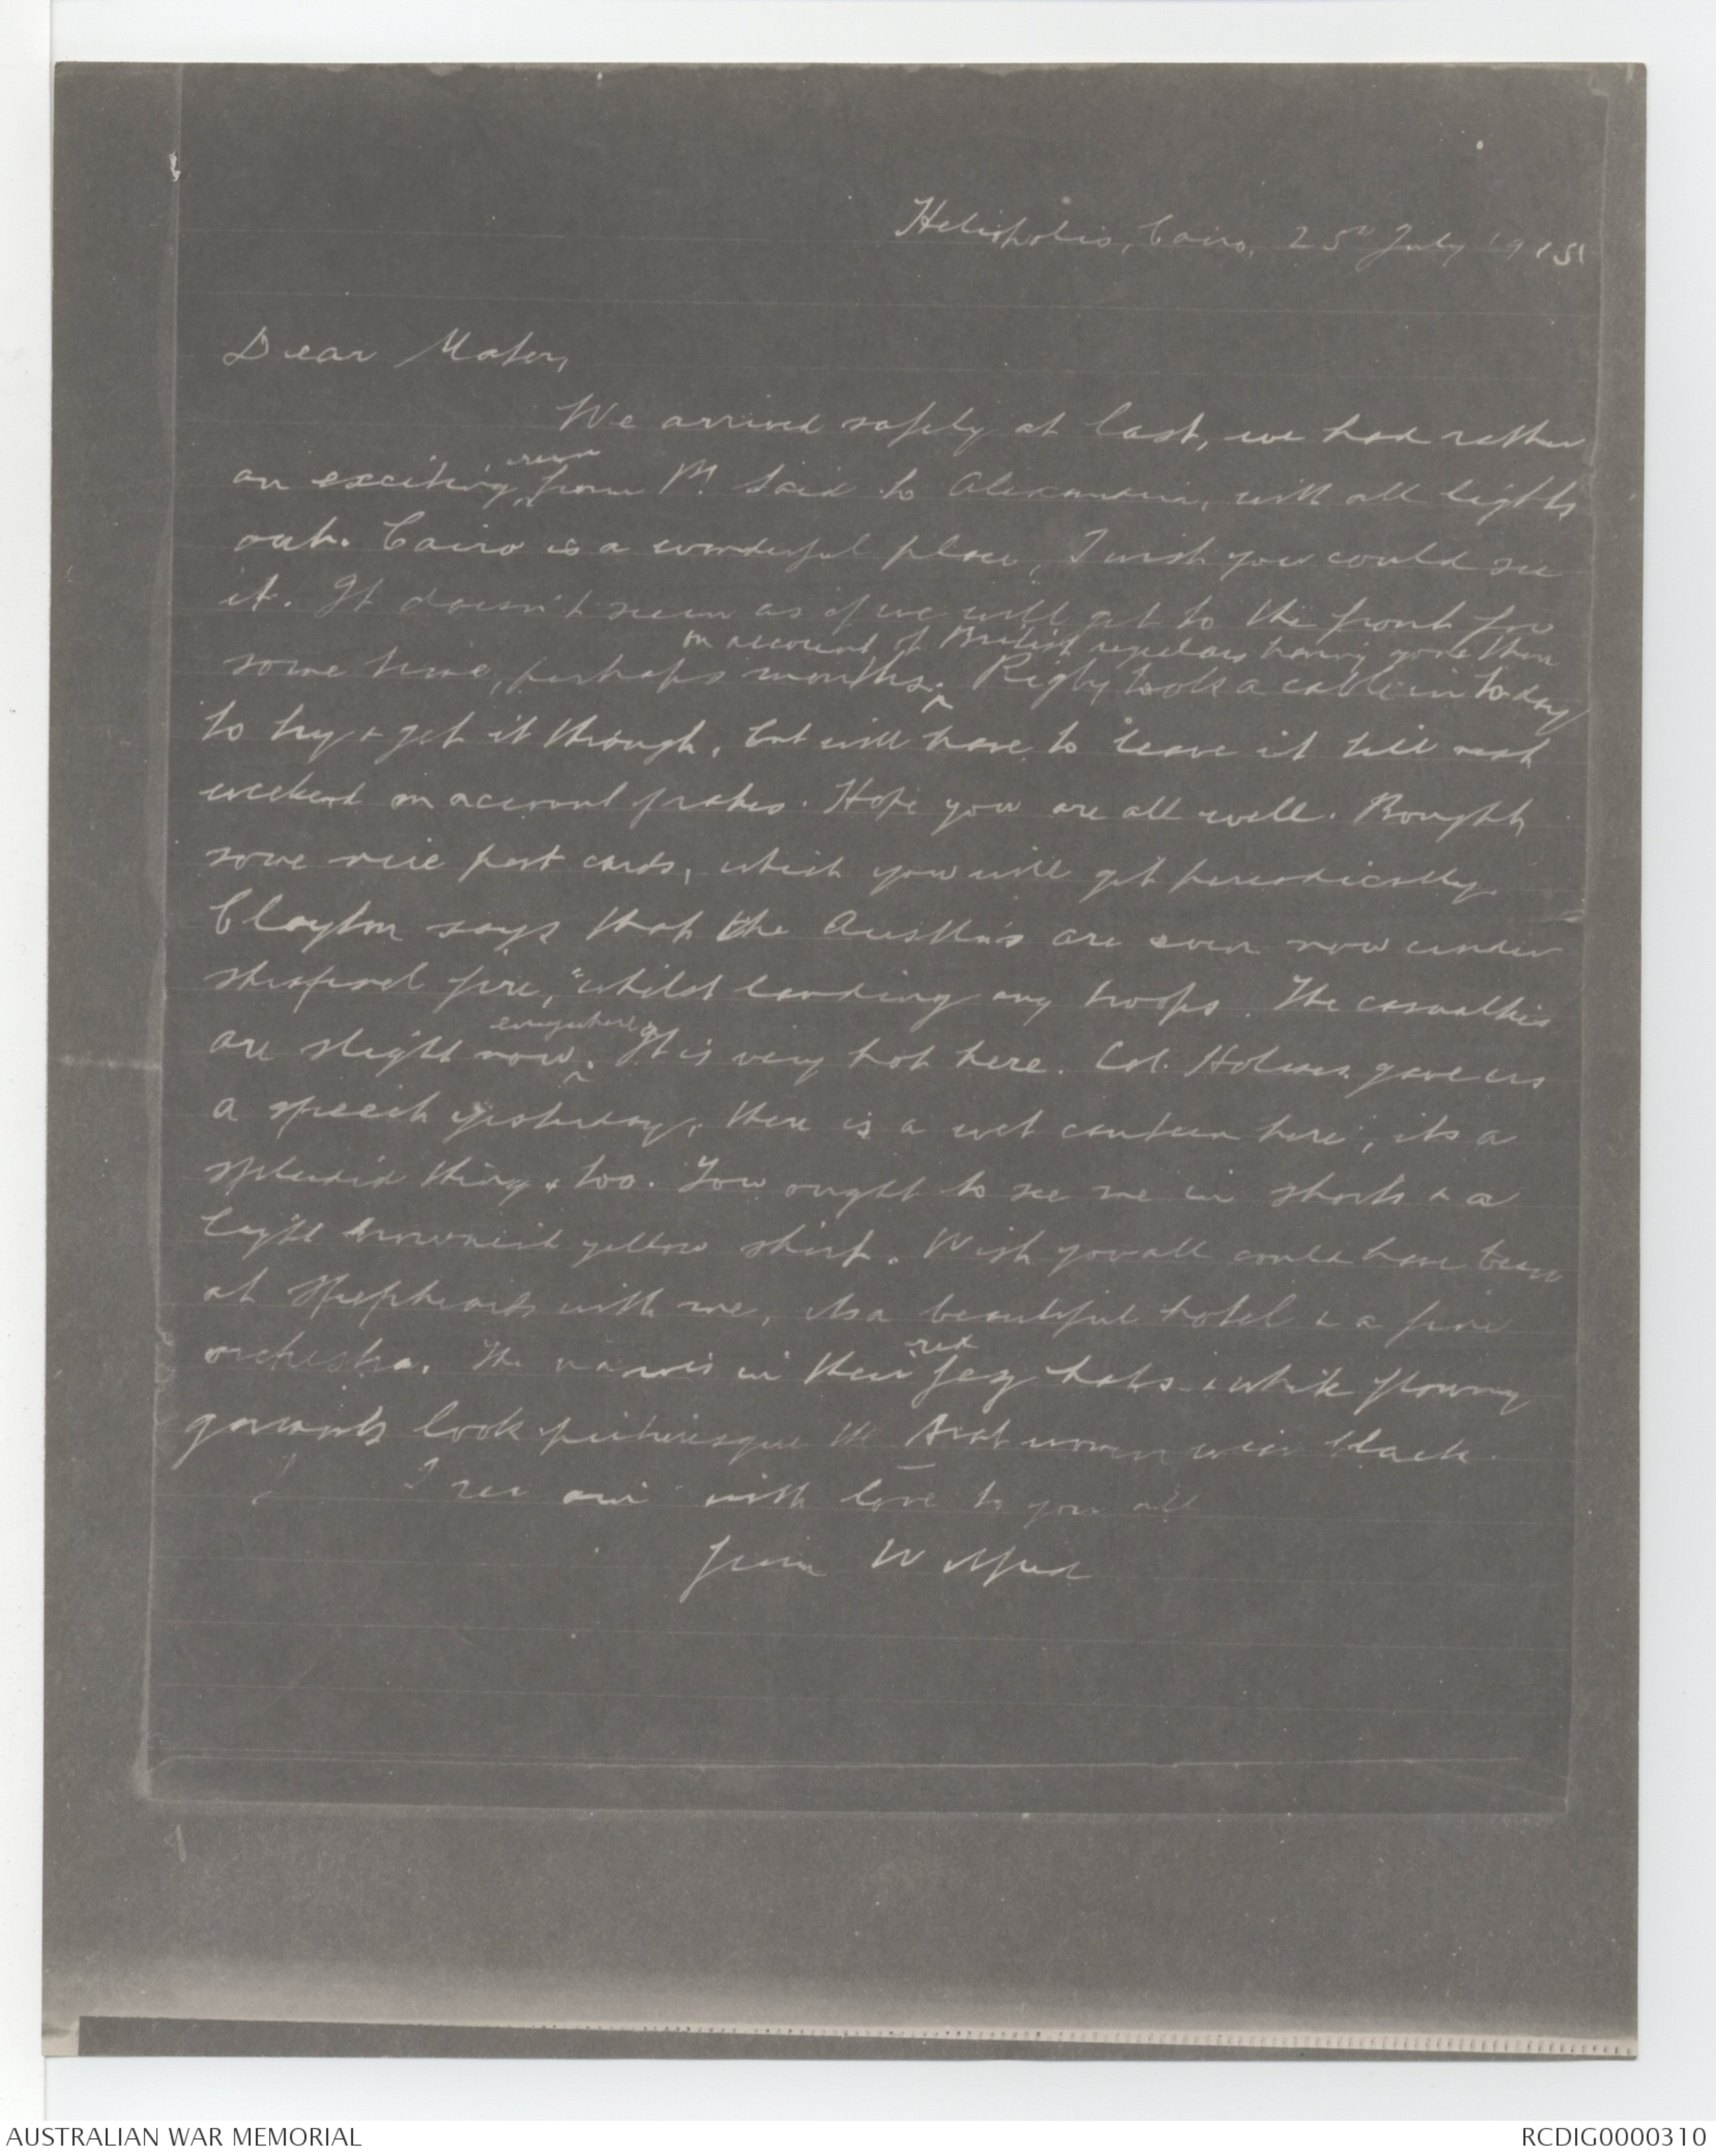 Heliopolis, Cairo, 25th July 1915
Dear Mater,
We arrived safely at last, we had rather
an exciting run from Pt. Said to Alexandria, with all lights
out. Cairo is a wonderful place, I wish you could see
it. It doesn't seem as if we will get to the front for
on account of British regulars having gone there
some time, perhaps months. Rigby took a cable in to day
to try & get it through, but will have to leave it till next
weekend on account of rates. Hope you are all well. Bought
some nice post cards, which you will get periodically.
Clayton says that the Austln's are even now under
shrapnel fire, whilst landing any troops. The casualties
are slight now everywhere. It is very hot here. Col. Holmes gave us
a speech yesterday, there is a wet canteen here, its a
splendid thing, too. You ought to see me in shorts & a
light brownish yellow shirt. Wish you all could have been
at Shepheards with me, its a beautiful hotel & a fine
orchestra. The natives in their red fez hats & white flowing
garments look picturesque the Arab women wear black.
I remain with love to you all
from Wilfred
AUSTRALIAN WAR MEMORIAL
RCDIG0000310